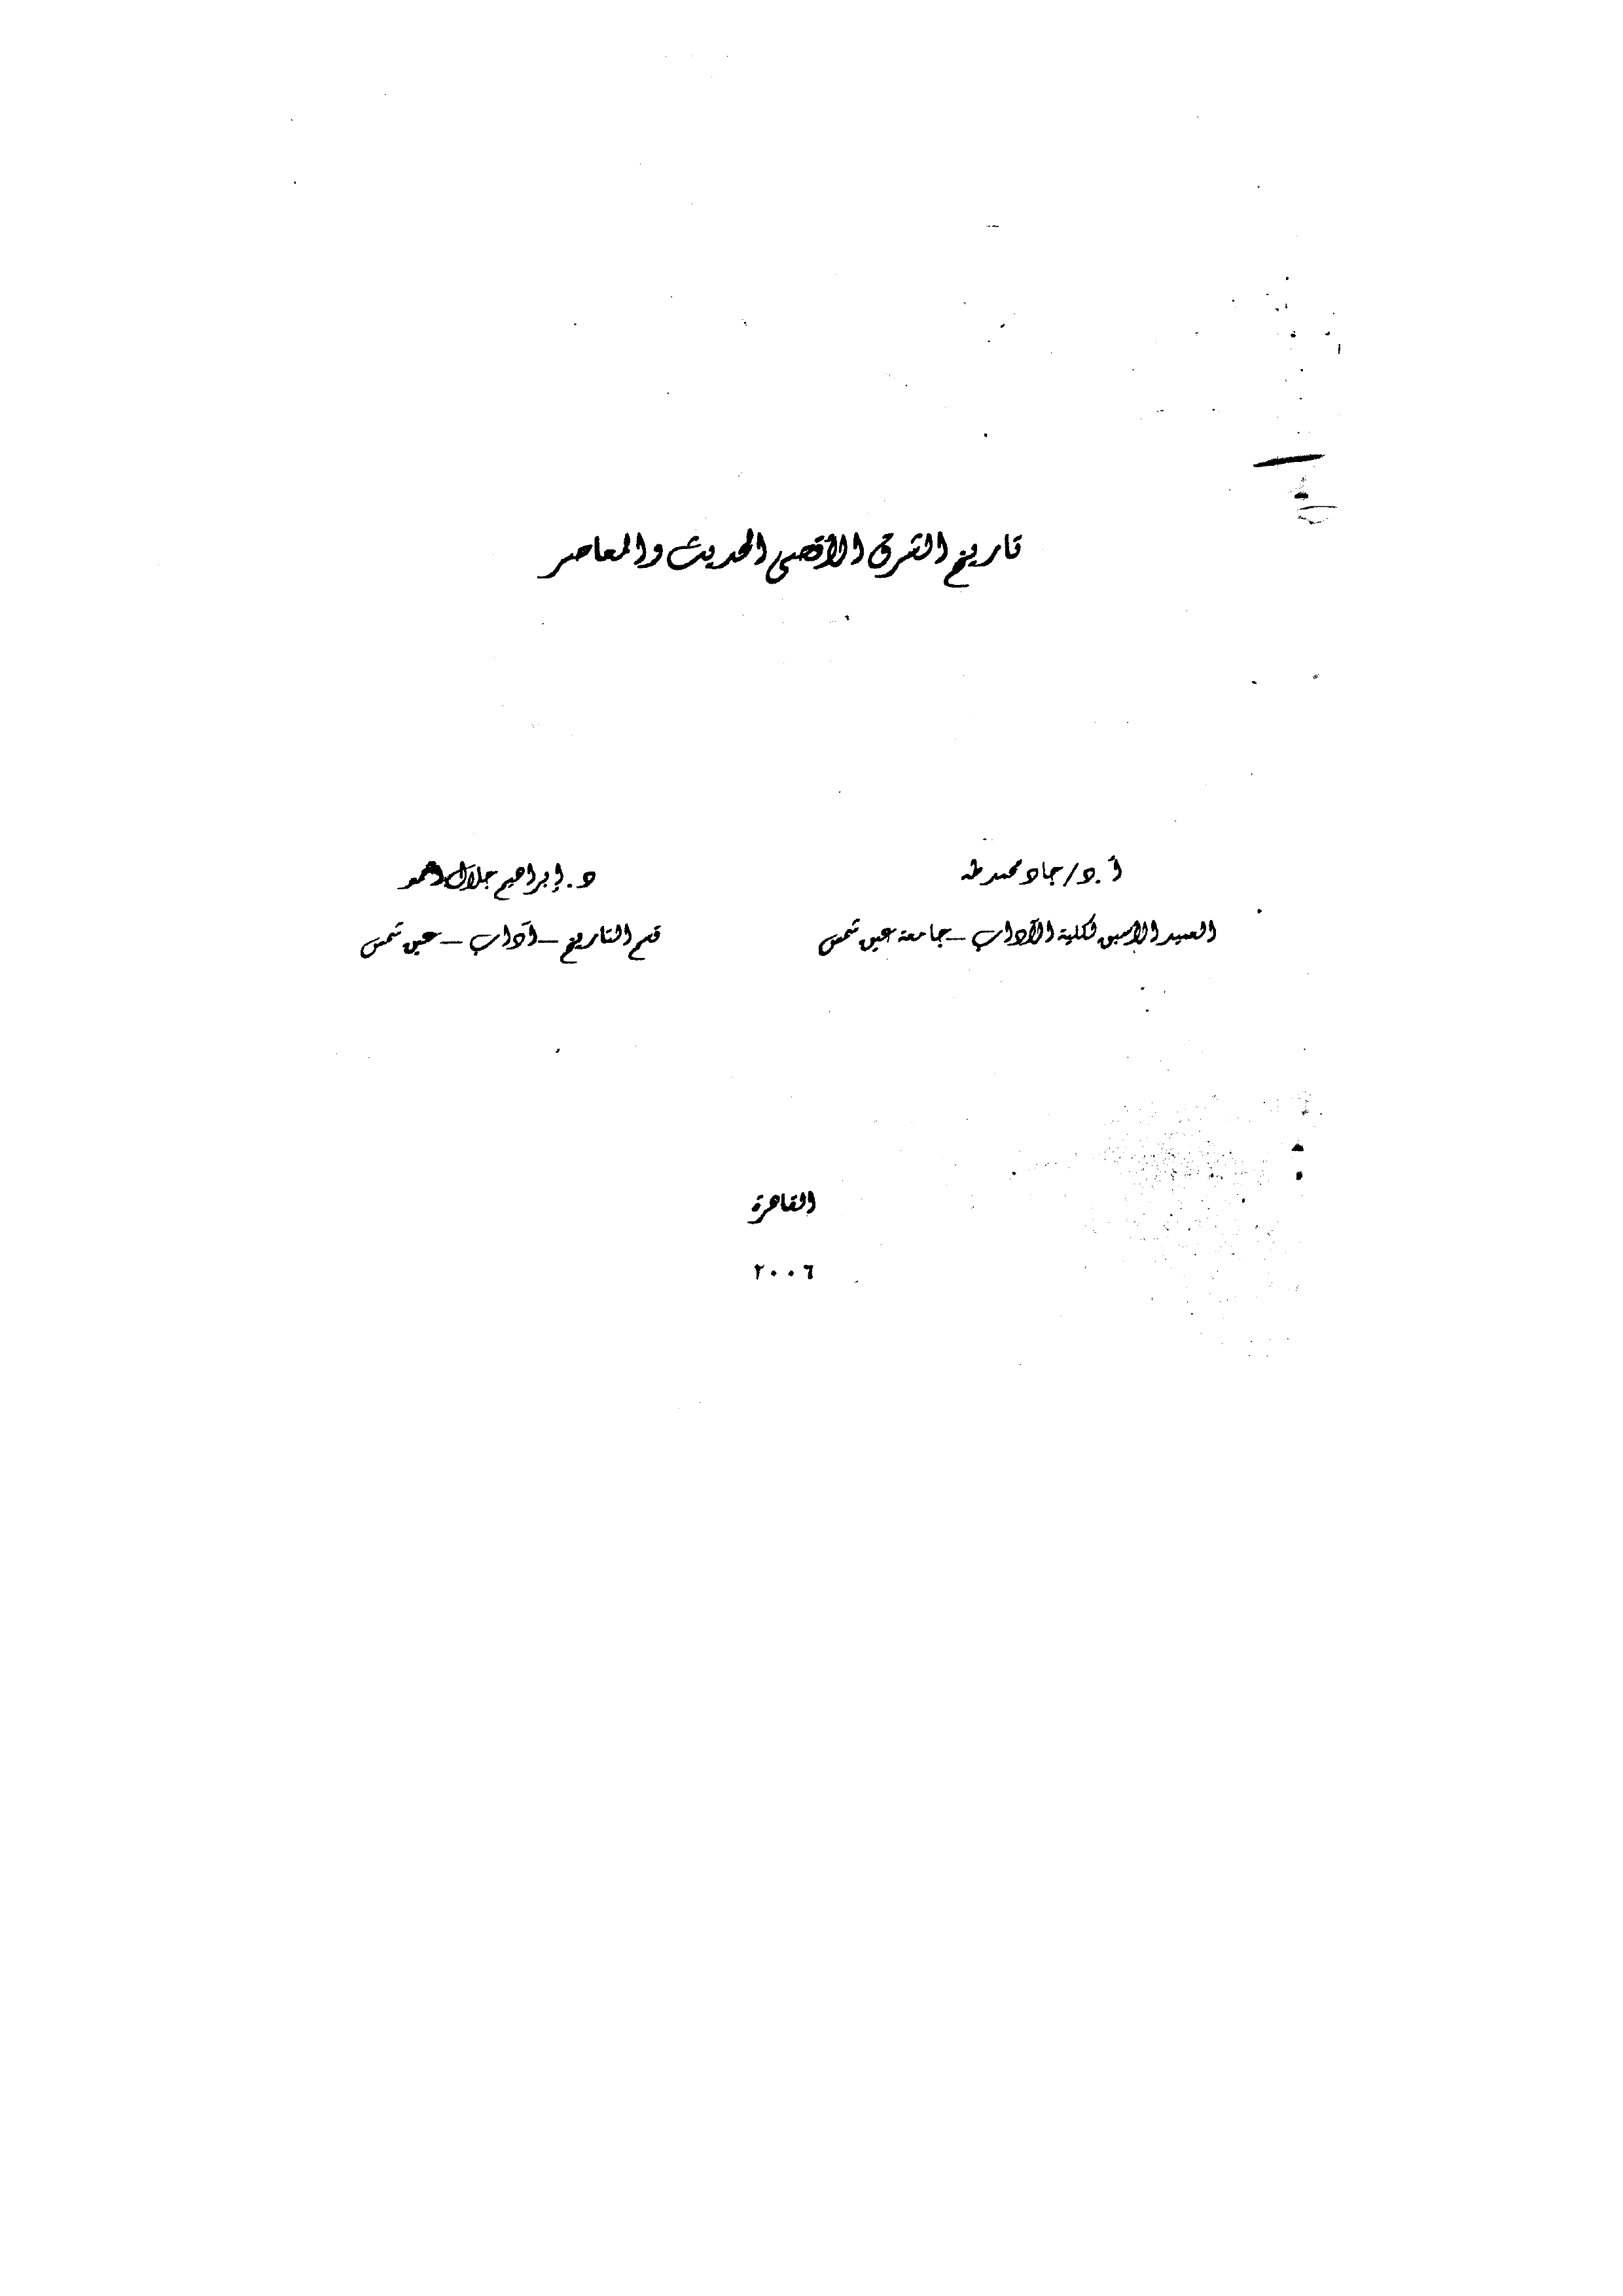 تاريخ الشرق الأقصى الحديث والمعاصر
أ.د/ جاد محمد طه
العميد الأسبق لكلية الآداب – جامعة عين شمس
د. إبراهيم جلال أحمد
قسم التاريخ – آداب – عين شمس
القاهرة
٢٠٠٦